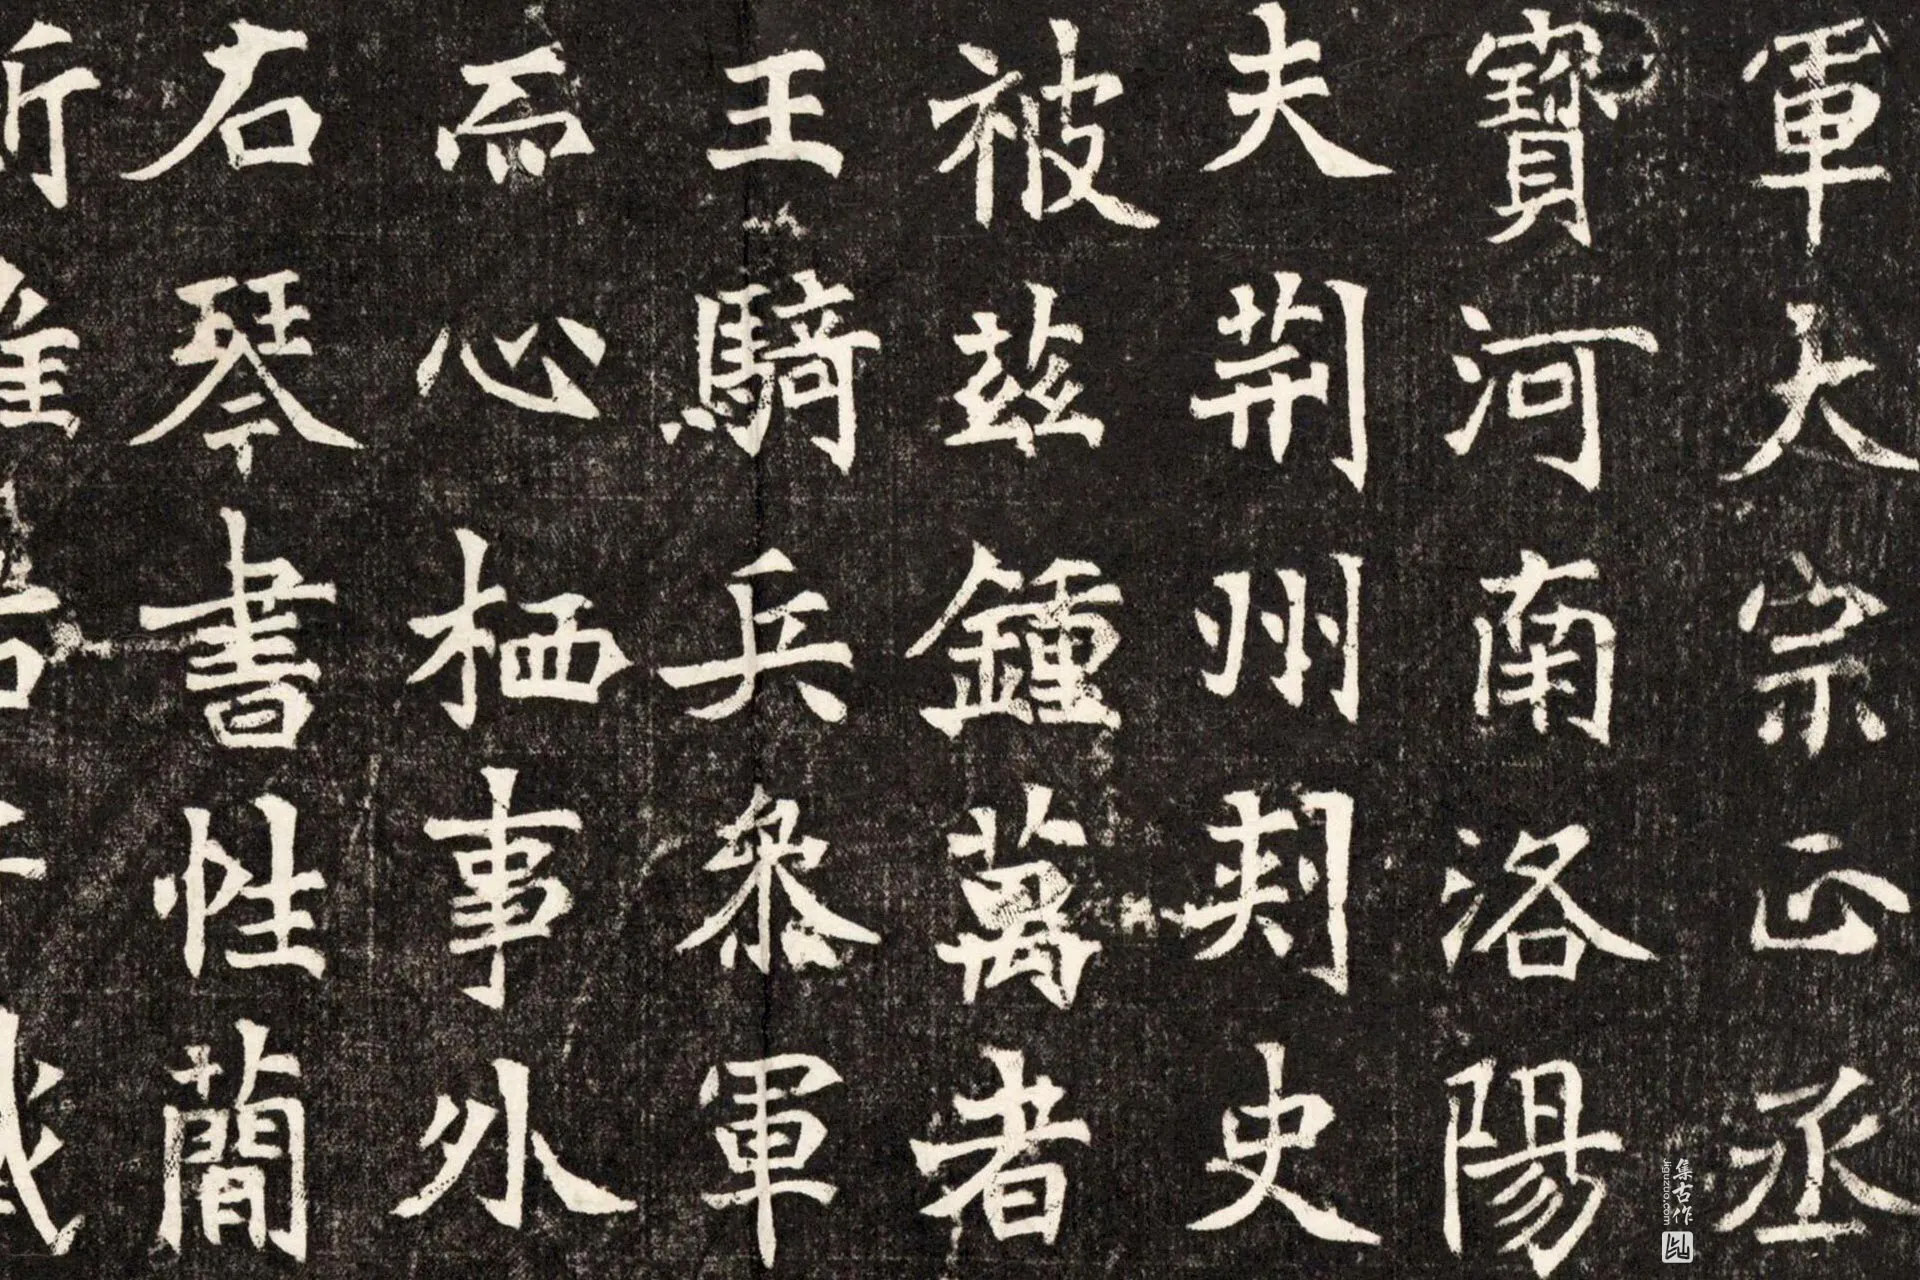 軍大宗正丞
寶河南洛陽
夫荆州刾史
被茲鍾萬者
王騎兵叅軍
而心栖事外
右琴書性簡
集古作
jiguzuo.com